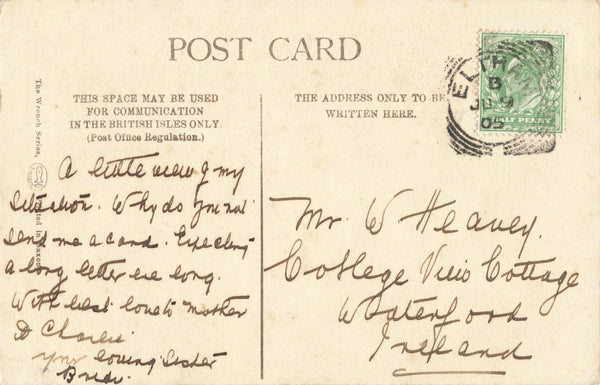 POST CARD
THIS SPACE MAY BE USED
FOR COMMUNICATION
IN THE BRITISH ISLES ONLY.
(Post Office Regulation.)
A little view of my
situation. Why do you not
send me a card. Expecting
a long letter ere long.
With best love to mother
& Charlie
Your loving Sister
The Wrench Series,
THE ADDRESS ONLY TO BE
WRITTEN HERE.
ELTHAM
B
09
05
HALF PENNY
Mr. W Heavey.
College View Cottage
Waterford
Ireland